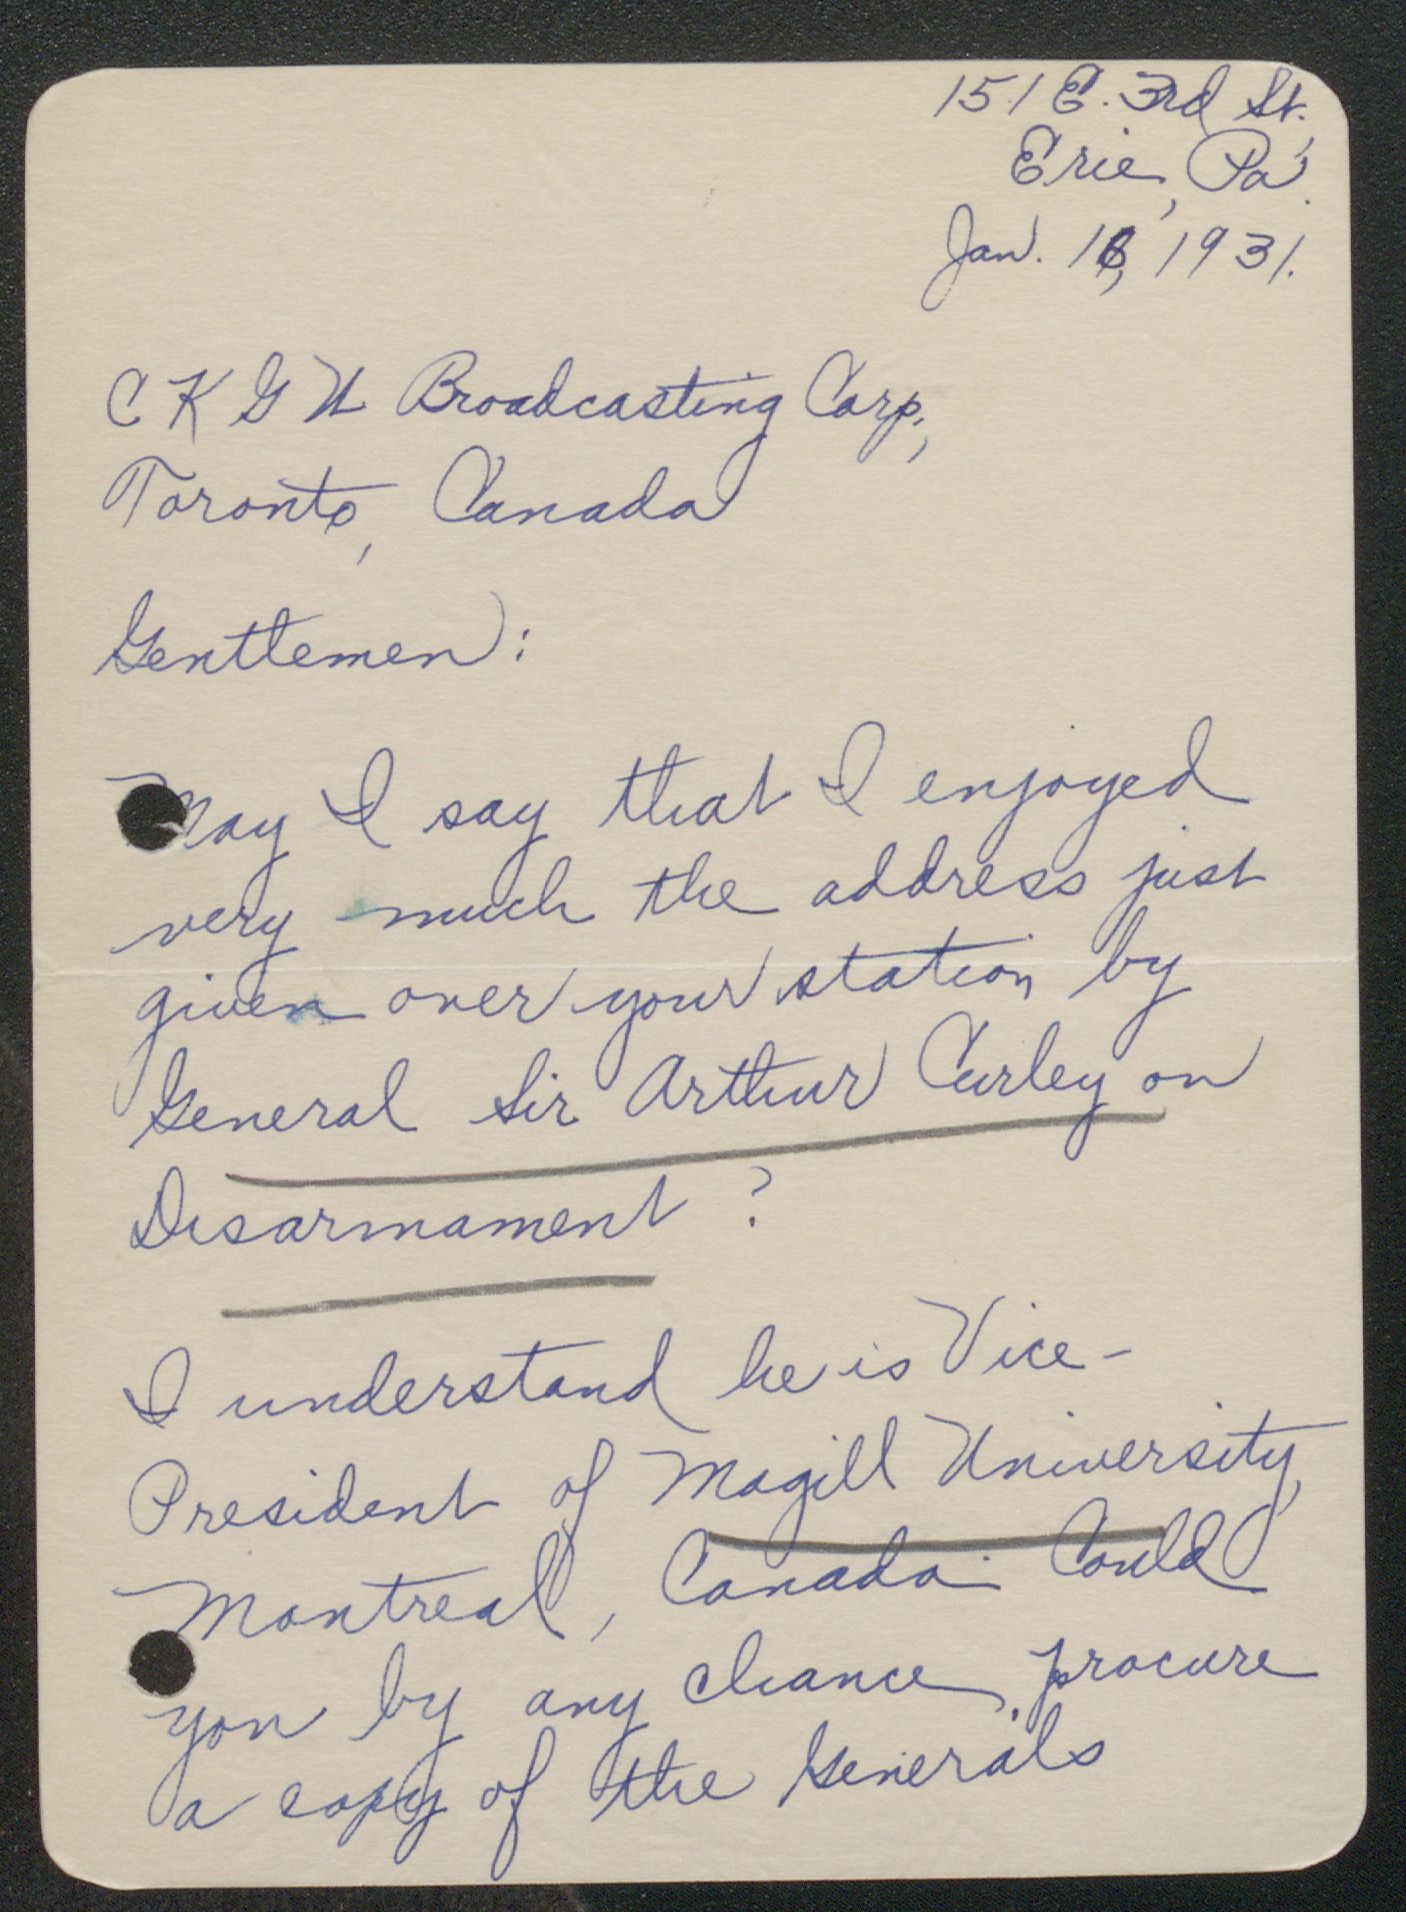 151 E. 3rd St.,
Erie, Pa.
Jan. 18, 1931.
C K G W Broadcasting Corp.,
Toronto, Canada
Gentlemen:
May I say that I enjoyed
very much the address just
given over your station by
General Sir Arthur Curley on
Disarmament?
I understand he is Vice-
President of Magill University,
Montreal, Canada. Could
you by any chance procure
a copy of the Generals